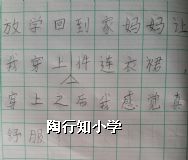 放学回到家妈妈让
我穿上件连衣裙
穿上之后我感觉真
舒服
陶行知小学